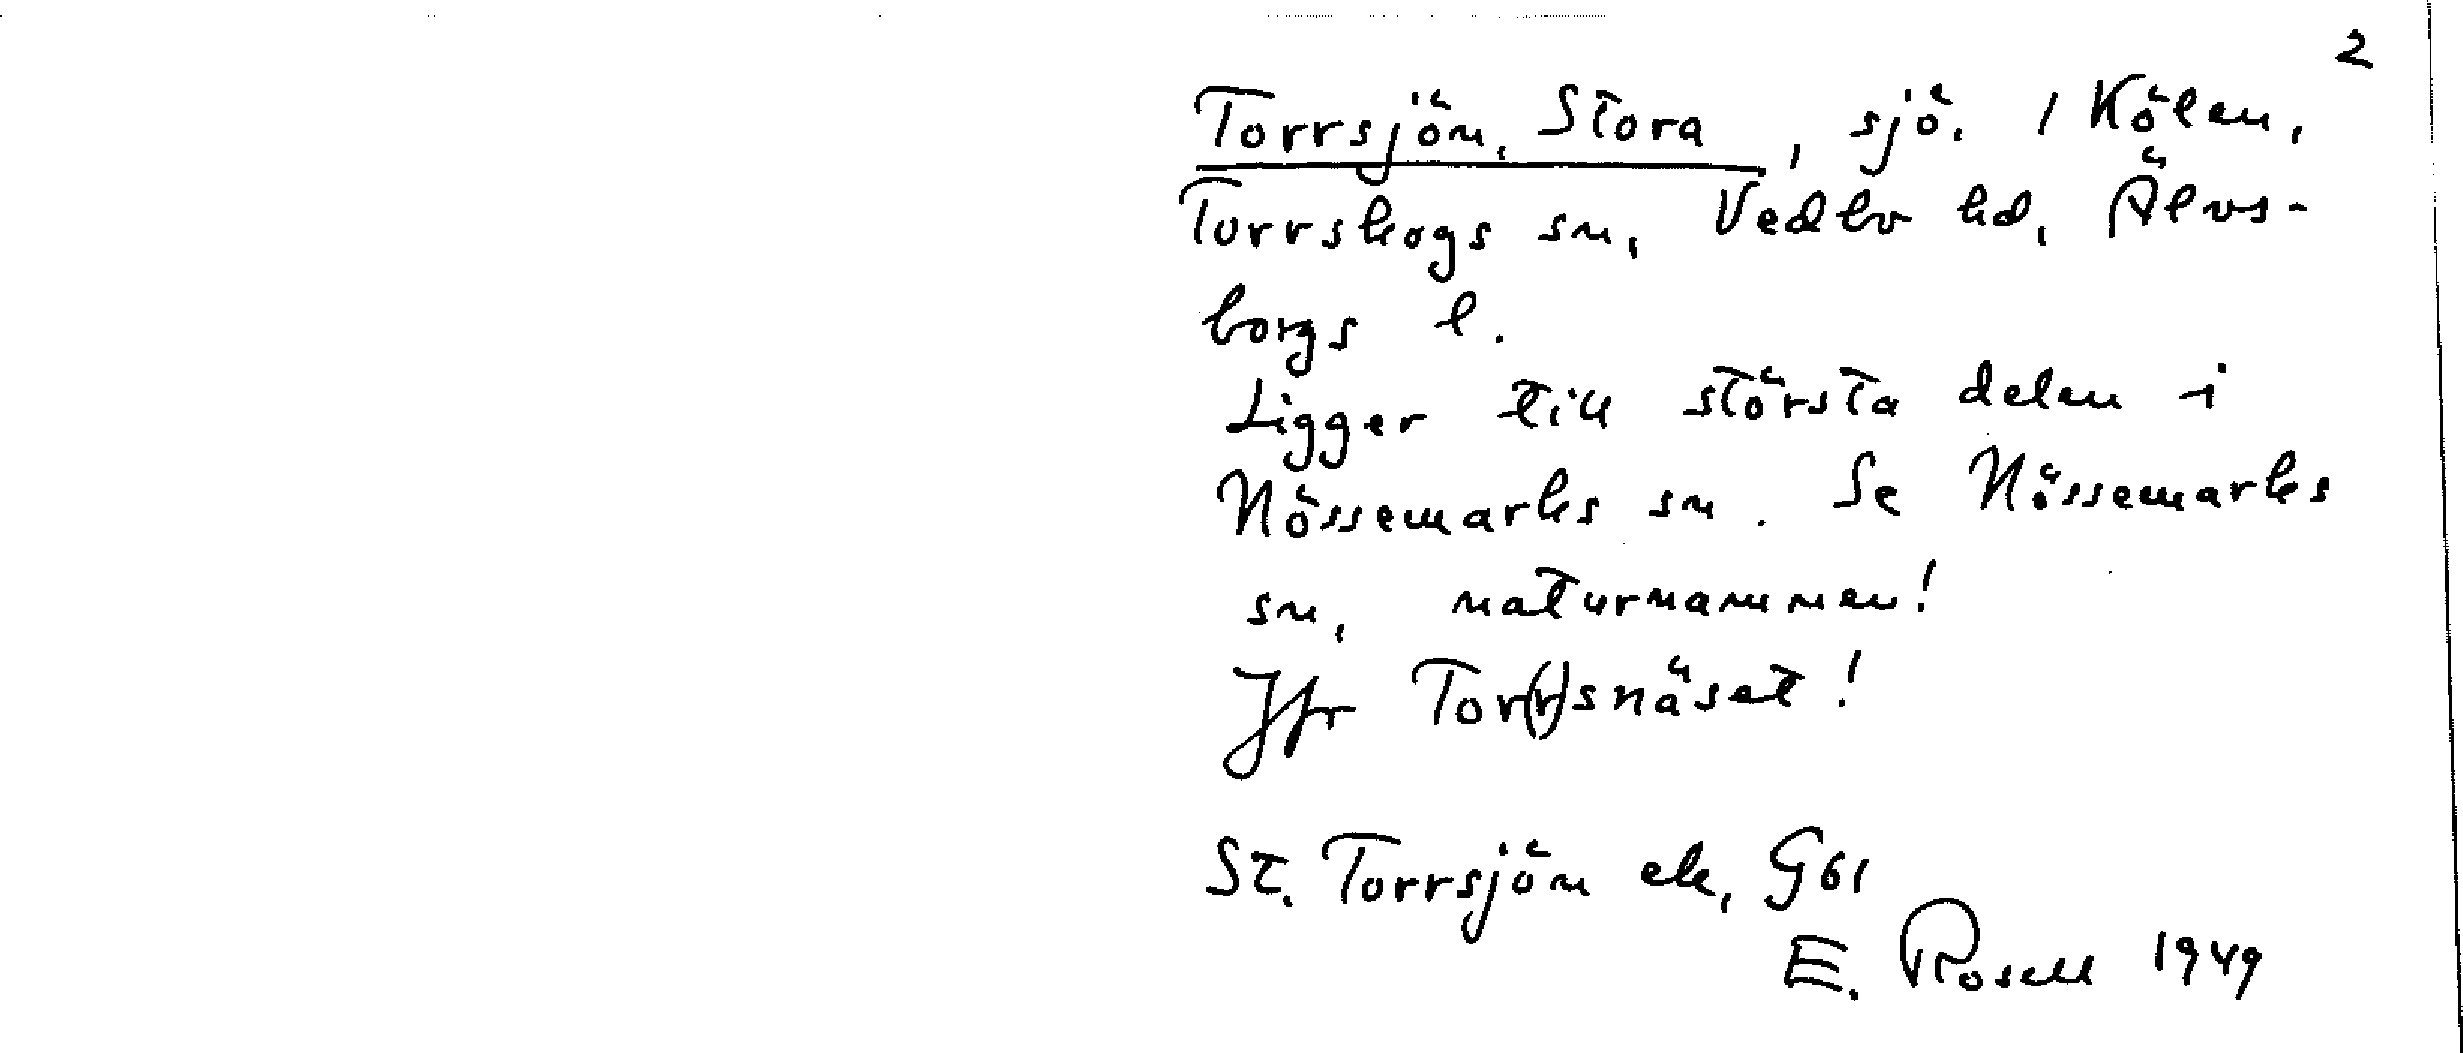 2
Torrsjön, Stora, sjö. 1 Kölen,
Torrskogs sn, Vedbo hd, Älvs-
borgs l.
Ligger till största delen i
Nössemarks sn. Se Nössemarks
sn, naturnamnen!
Jfr Tor(r)snäset!
St. Torrsjön ek, G61
E. Rosell 1949